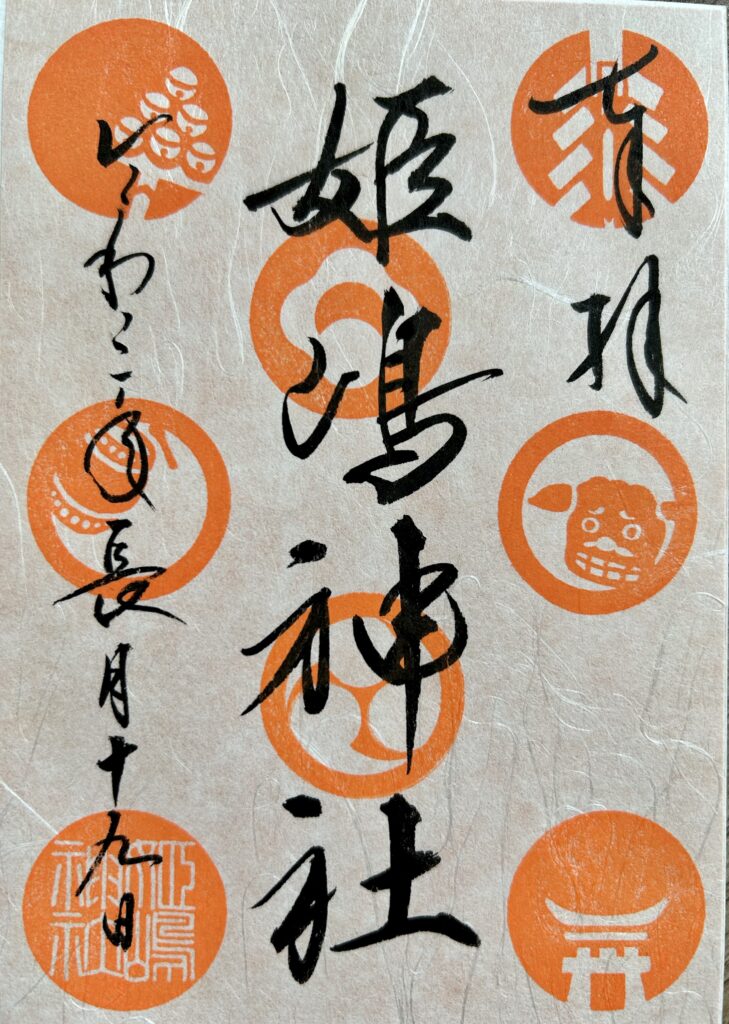 奉拝
姫嶋神社
令和二年長月十九日
姫嶋
神社